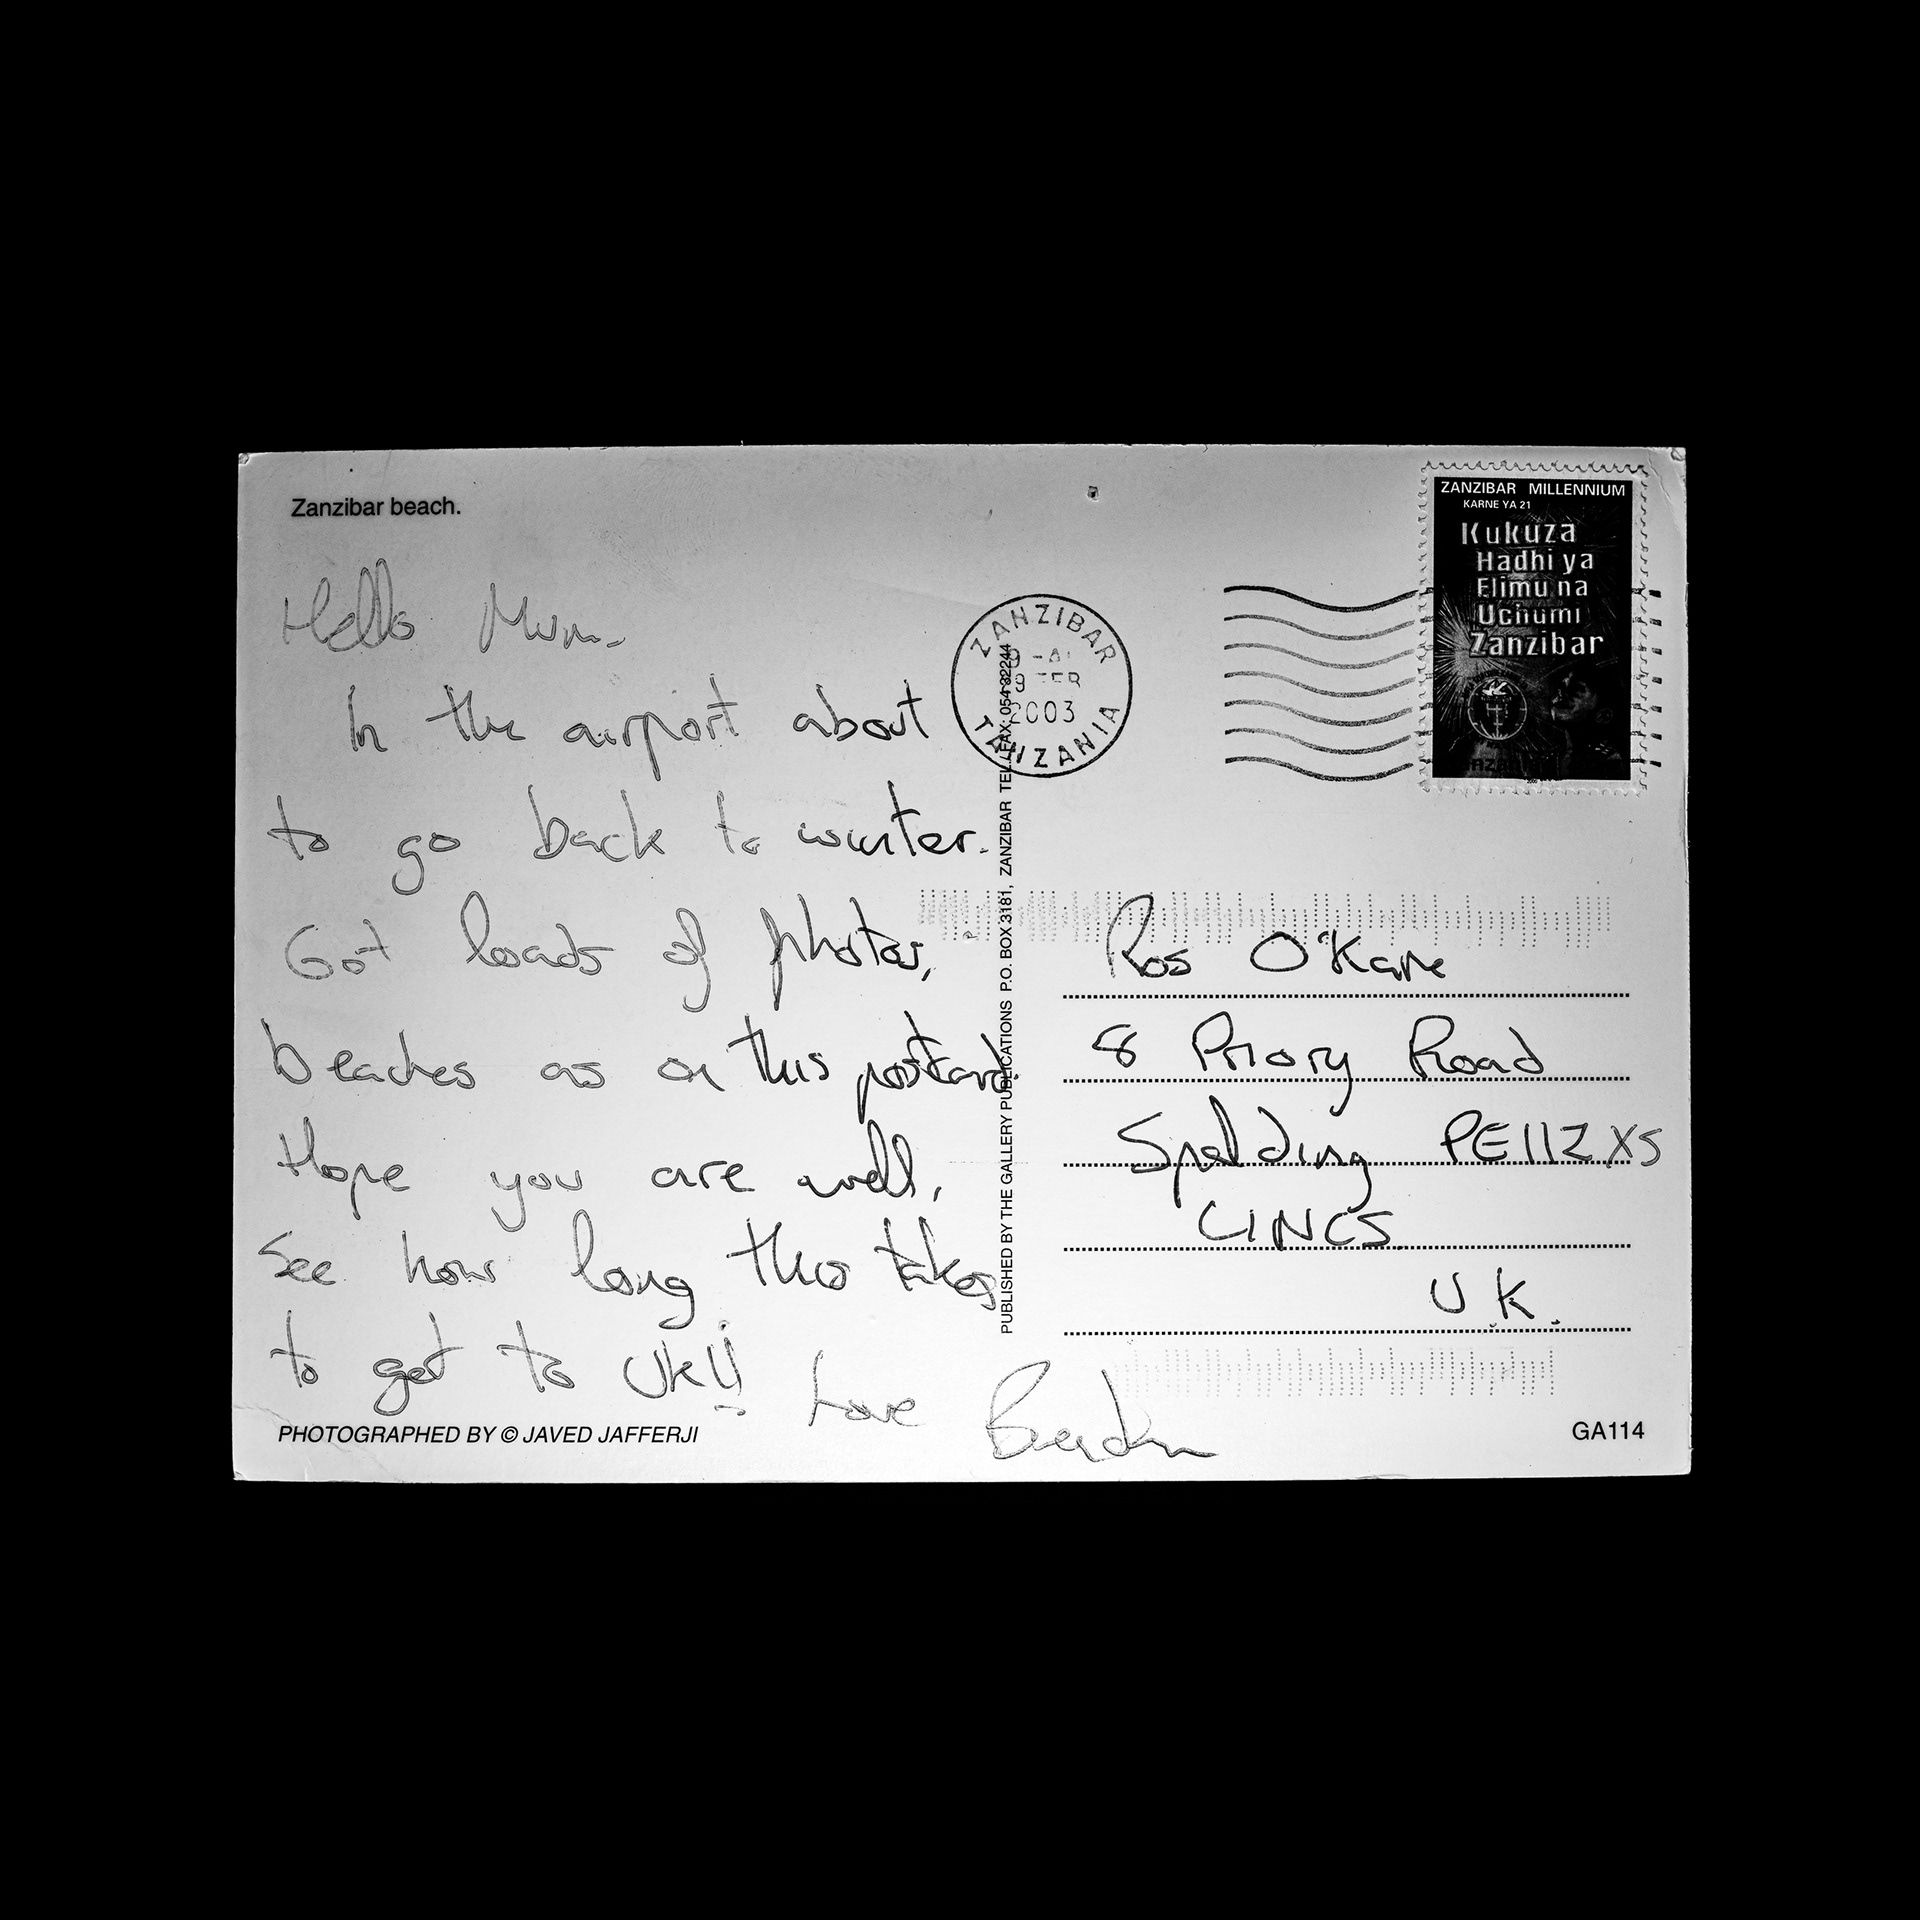 Zanzibar beach.
Hello Mum,
In the airport about
to go back to winter.
Got loads of photos,
beaches as on this postcard.
Hope you are well,
See how long this takes
to get to UK!!
Love
PHOTOGRAPHED BY © JAVED JAFFERJI
PUBLISHED BY THE GALLERY PUBLICATIONS P.O. BOX 3181, ZANZIBAR TEL./FAX: 054 32244
ZANZIBAR
9 FEB
2003
TANZANIA
ZANZIBAR MILLENNIUM
KARNE YA 21
Kukuza
Hadhi ya
Elimu na
Uchumi
Zanzibar
Ros O'Kane
8 Priory Road
Spalding PE112XS
LINCS.
U.K.
GA114